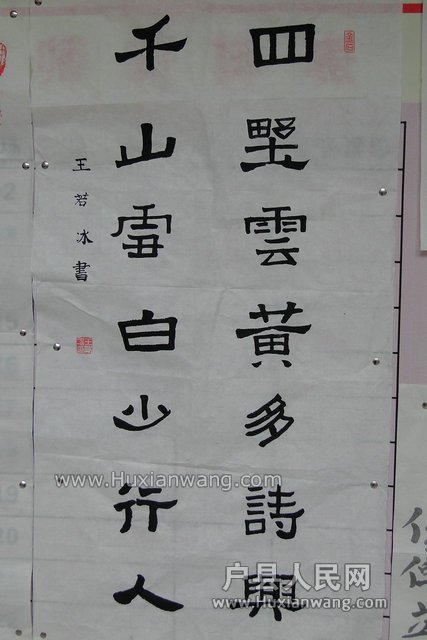 四埜雲黃多詩興
千山雪白少行人
王若冰書
www.Huxianwang.com
户县人民网
www.Huxianwang.com